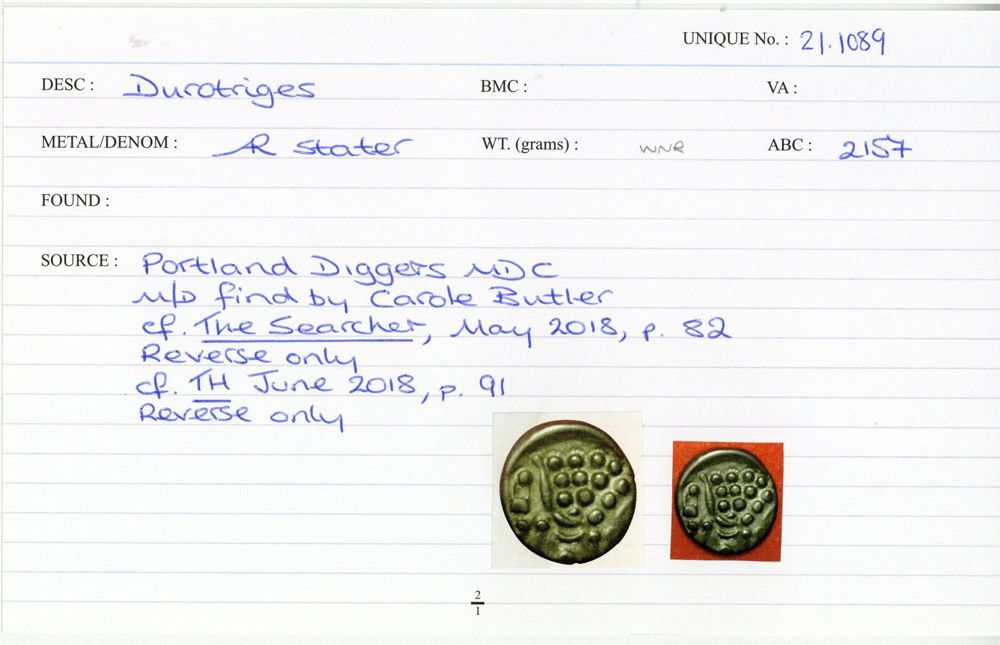 UNIQUE No. : 21.1089
DESC : Durotriges BMC : VA :
METAL/DENOM : AR stater WT. (grams) : WNR ABC : 2157
FOUND :
SOURCE : Portland Diggers MDC
M/D find by Carole Butler
cf. The Searcher, May 2018, p. 82
Reverse only
cf. TH June 2018, p. 91
Reverse only
2
1